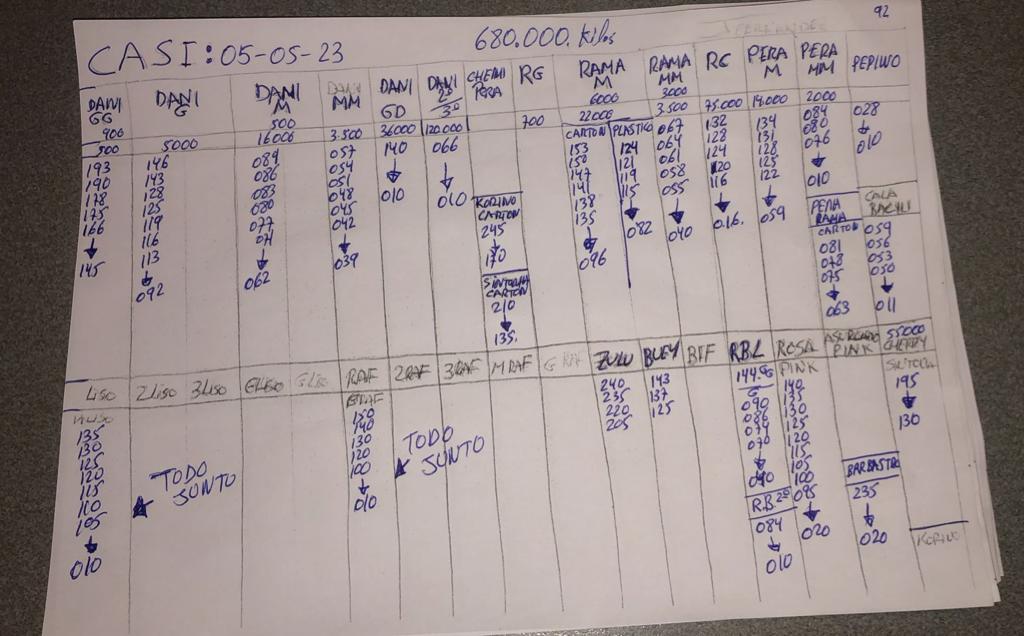 92
680.000. kilos
CASI: 05-05-23
DANI GG
900
500
193
190
178
175
166
145
DANI G
5000
146
143
128
125
119
116
113
092
DANI M
500
16000
089
086
083
080
077
071
062
DANI MM
3.500
057
054
051
048
045
042
039
DANI GD
36000
140
010
DANI 2ª 3ª
120.000
066
010
CHERRI PERA
KORINO CARTON
245
170
CARTON
210
135.
RG
700
RAMA M
6000
22000
CARTON
153
150
147
141
138
135
096
PLASTICO
124
121
119
115
082
RAMA MM
3000
3.500
067
064
061
058
055
040
RC
75.000
132
128
124
120
116
016.
PERA M
14.000
134
131
128
125
122
059
PERA MM
2000
084
080
076
010
PERA RAMA
CARTON
081
078
075
063
PEPINO
028
010
CALA BACHI
059
056
053
050
011
LISO
135
130
125
120
115
110
105
010
2LISO
3LISO
GLISO
TODO JUNTO
RAF
150
140
130
120
100
010
2RAF
3RAF
MRAF
G RAF
TODO JUNTO
ZULU
240
235
220
205
BUEY
143
137
125
BTF
RBL
090
086
079
070
040
R.B. 2ª
084
010
ROSA
PINK
140
135
130
125
120
115
105
100
095
020
ASURCADO PINK
BARBASTRO
235
020
55000
CHERRY
195
130
KORINO